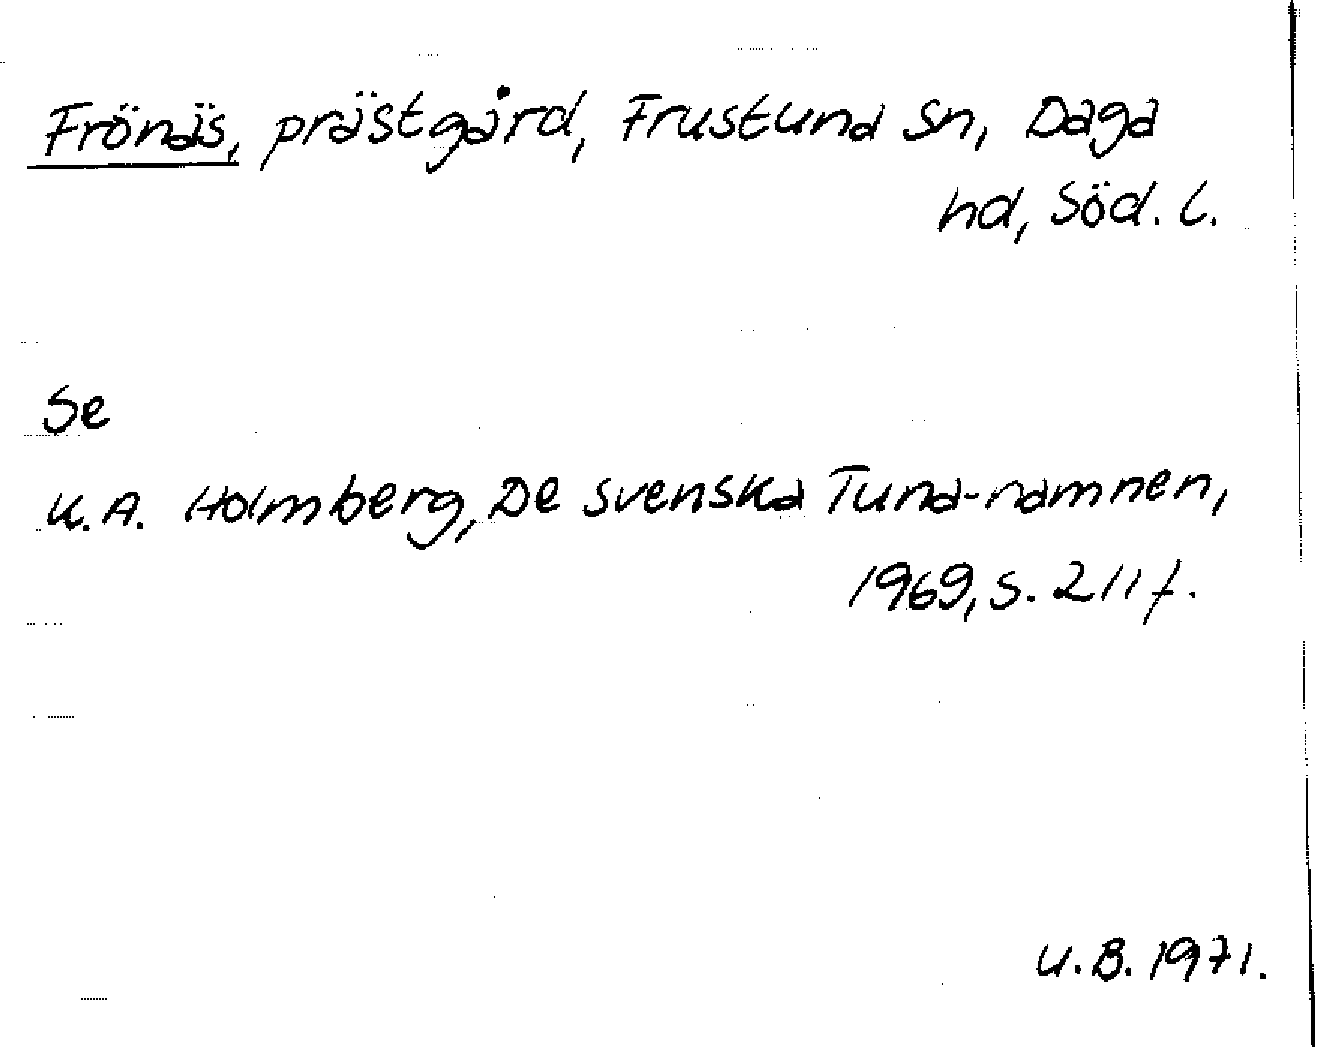 Frönäs, prästgård, Frustuna sn, Daga
hd, Söd. l.
Se
K.A. Holmberg, De svenska Tuna-namnen,
1969, s. 211 f.
U.B. 1971.